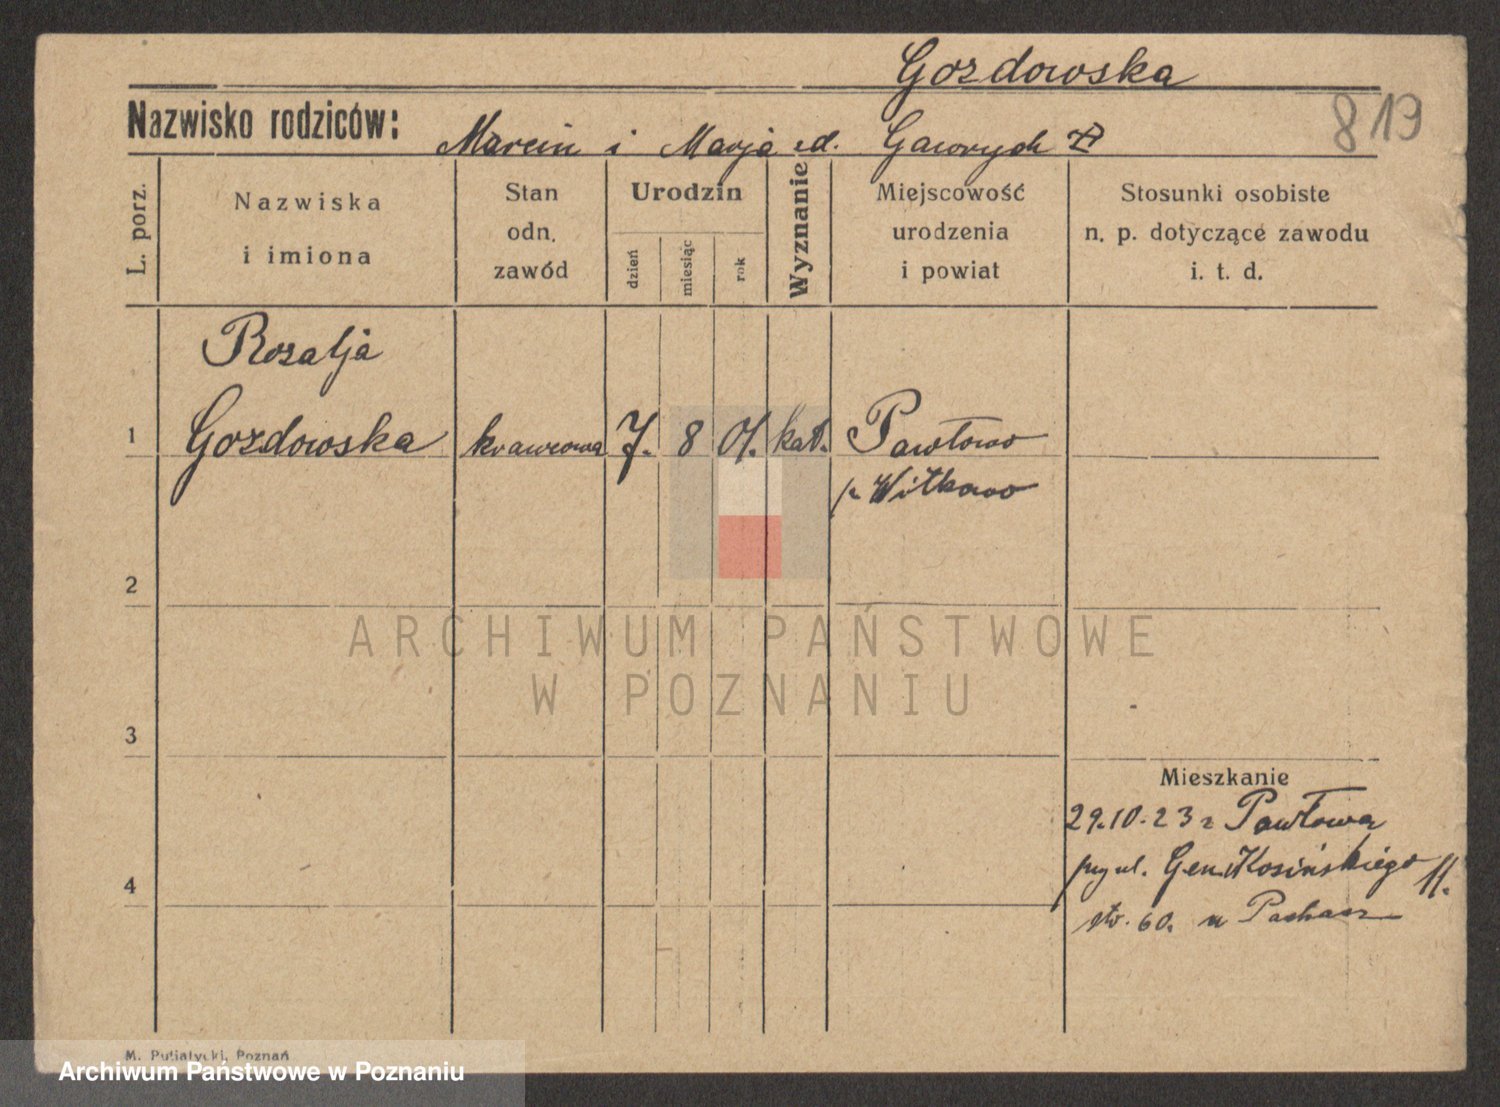 Gozdowska
Nazwisko rodziców:
Marcin i Marja z d. Gawrych
819
L. porz.
Nazwiska
i imiona
Stan
odn.
zawód
Urodzin
dzień
miesiąc
rok
Wyznanie
Miejscowość
urodzenia
i powiat
Stosunki osobiste
n. p. dotyczące zawodu
i. t. d.
Rozalja
1 Gozdowska krawcowa 7. 8 01. kat. Pawłowo
p. Witkowo
2
ARCHIWUM PAŃSTWOWE
W POZNANIU
3
Mieszkanie
29.10.23 z Pawłowa
przy ul. Gen. Kosińskiego 11.
4
str. 60. u
M. Putiatycki, Poznań
Archiwum Państwowe w Poznaniu